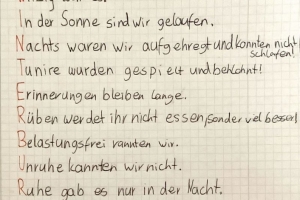 In der Sonne sind wir gelaufen.
Nachts waren wir aufgehregt und konnten nicht
schlafen!
Tunire wurden gespielt und beklohnt!
Erinnerungen bleiben lange.
Rüben werdet ihr nicht essen, sonder viel besser!
Belastungsfrei rannten wir.
Unruhe kannten wir nicht.
Ruhe gab es nur in der Nacht.